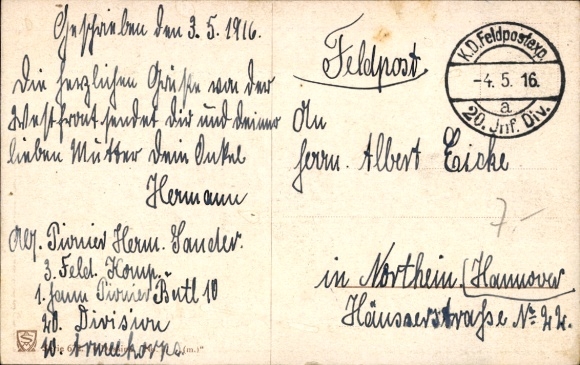 Geschrieben den 3. 5. 1916.
Die herzlichen Grüße von der
Westfront sendet dir und deiner
lieben Mutter dein Onkel
Hermann
Abs. Pionier Herm. Sander.
3. Feld. Komp.
1. Hann Pionier Batl 10
20. Division
10. Armeekorps
Feldpost
K.D. Feldpostexp.
-4. 5. 16.
a
20. Inf. Div.
An
Herrn. Albert Eicke
7.-
in Northein. (Hannover
Häusserstrasse No 22.